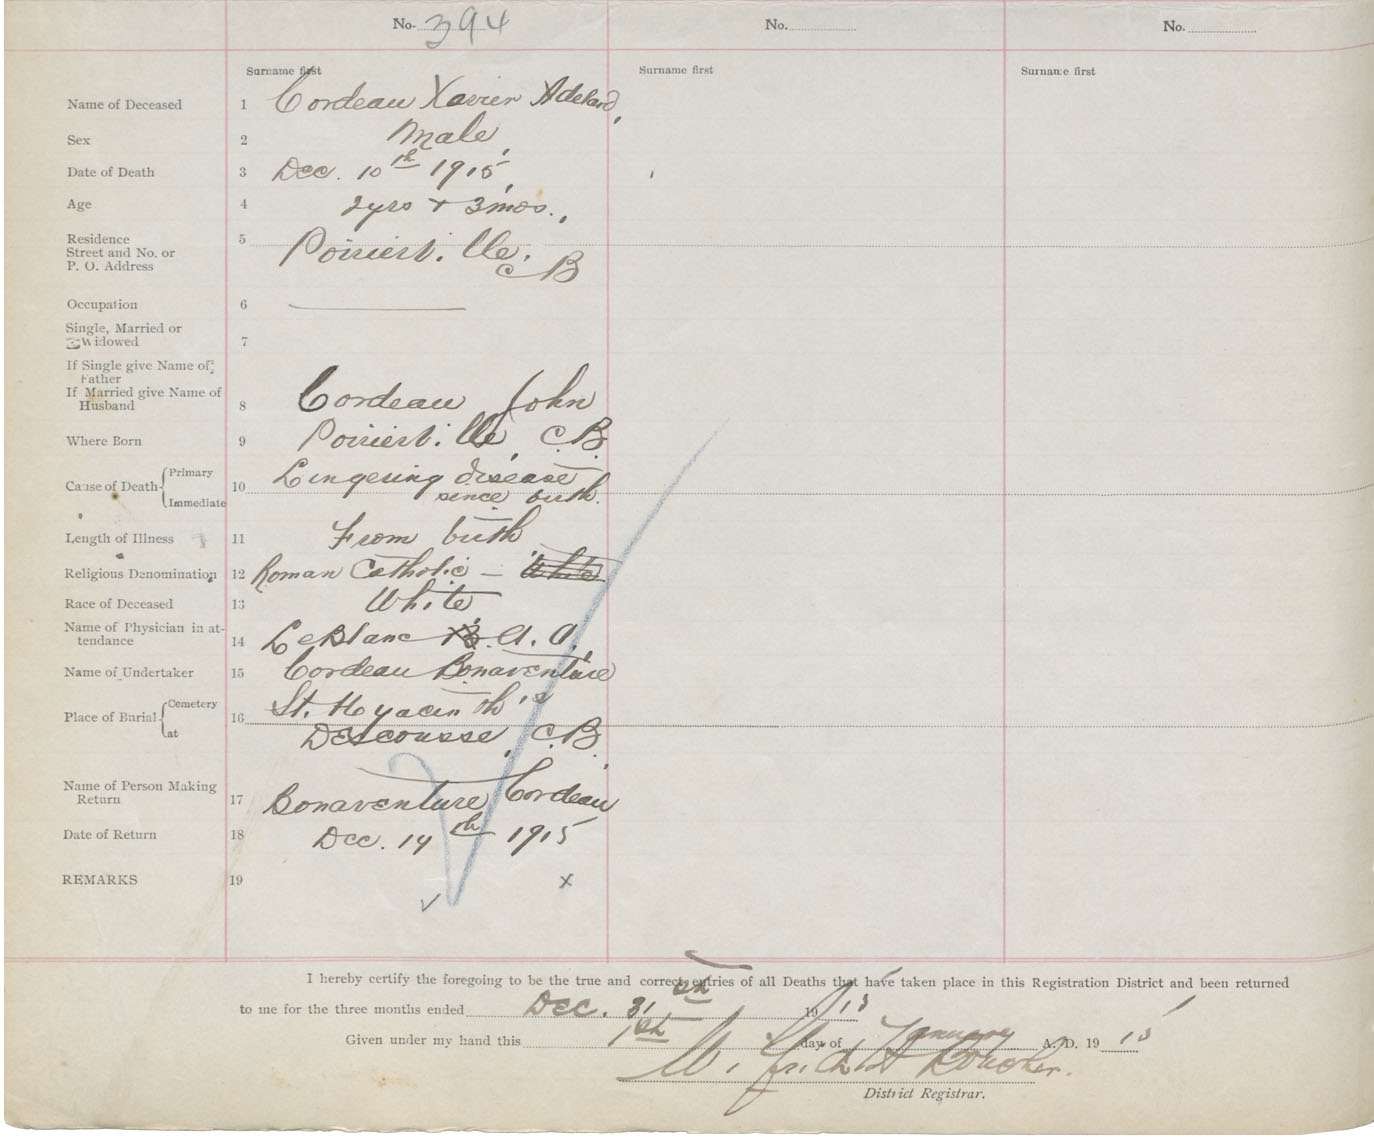 No. 394 No. No.
Surname first Surname first Surname first
Name of Deceased 1 Cordeau Xavier Adelard,
Sex 2 Male,
Date of Death 3 Dec. 10th 1915,
Age 4 2 yrs + 3 mos.,
Residence 5
Street and No. or Poirierville,
P. O. Address C B
Occupation 6
Single, Married or
Widowed 7
If Single give Name of
Father
If Married give Name of
Husband 8 Cordeau John
Where Born 9 Poirierville, C.B.
Cause of Death Primary 10 Lingering disease
Immediate since birth.
Length of Illness 11 From birth
Religious Denomination 12 Roman Catholic — White
Race of Deceased 13 White
Name of Physician in at-
tendance 14 LeBlanc B. A. A,
Name of Undertaker 15 Cordeau Bonaventure
Place of Burial Cemetery 16 St. Hyacinth's
at Descousse, C.B.
Name of Person Making
Return 17 Bonaventure Cordeau
Date of Return 18 Dec. 14th 1915
REMARKS 19 x
I hereby certify the foregoing to be the true and correct entries of all Deaths that have taken place in this Registration District and been returned
to me for the three months ended Dec. 31st 1915
Given under my hand this 1st day of January A. D. 1915
Boucher.
District Registrar.